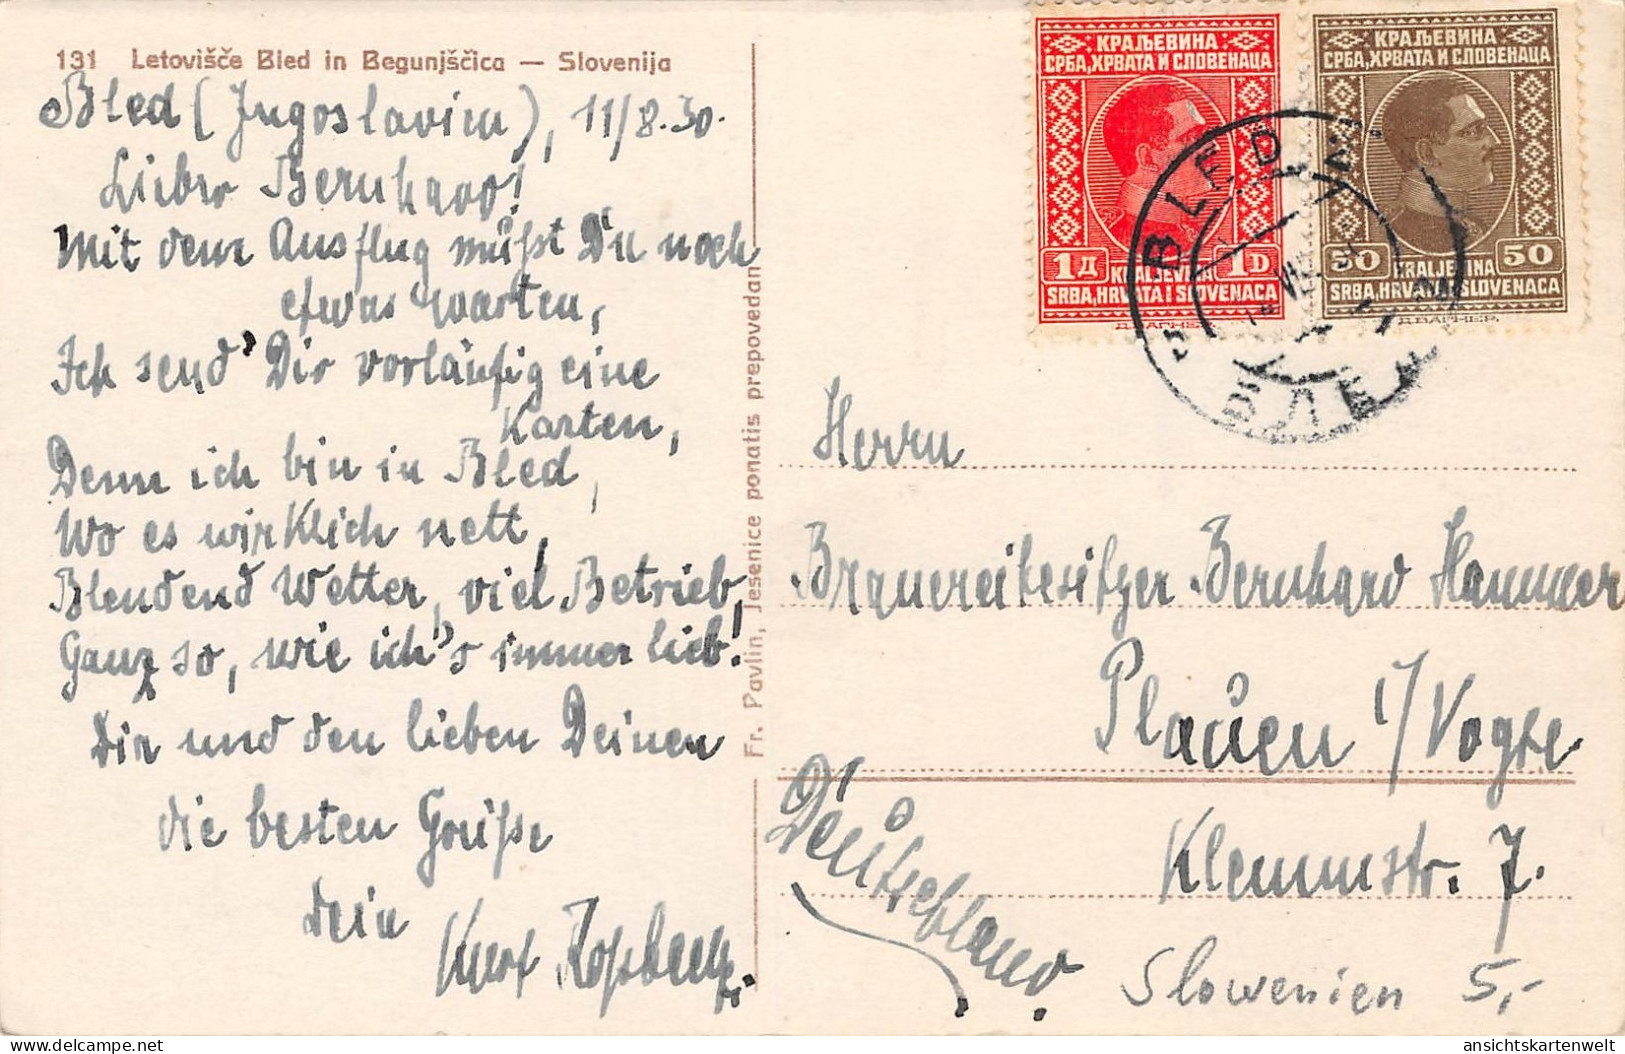 131 Letovišče Bled in Begunjščica — Slovenija
Bled (Jugoslavien), 11/8.30.
Lieber Bernhard!
Mit dem Ausflug mußt Du noch
etwas warten,
Ich send' Dir vorläufig eine
Karten,
Denn ich bin in Bled,
Wo es wirklich nett,
Blendend Wetter, viel Betrieb,
Ganz so, wie ich's immer lieb!
Dir und den lieben Deinen
die besten Grüße
Dein
Kurt
Fr. Pavlin, Jesenice ponatis prepovedan
КРАЉЕВИНА
СРБА, ХРВАТА И СЛОВЕНАЦА
1Д KRALJEVINA 1D
SRBA, HRVATA I SLOVENACA
Д.ВАГНЕР.
КРАЉЕВИНА
СРБА, ХРВАТА И СЛОВЕНАЦА
50 KRALJEVINA 50
SRBA, HRVATA I SLOVENACA
Д.ВАГНЕР.
BLED
БЛЕД
Herrn
Brauereibesitzer Bernhard Hammer
Plauen i/Vogtl.
Klemmstr. 7.
Deutschland
Slowenien 5,-
ansichtskartenwelt